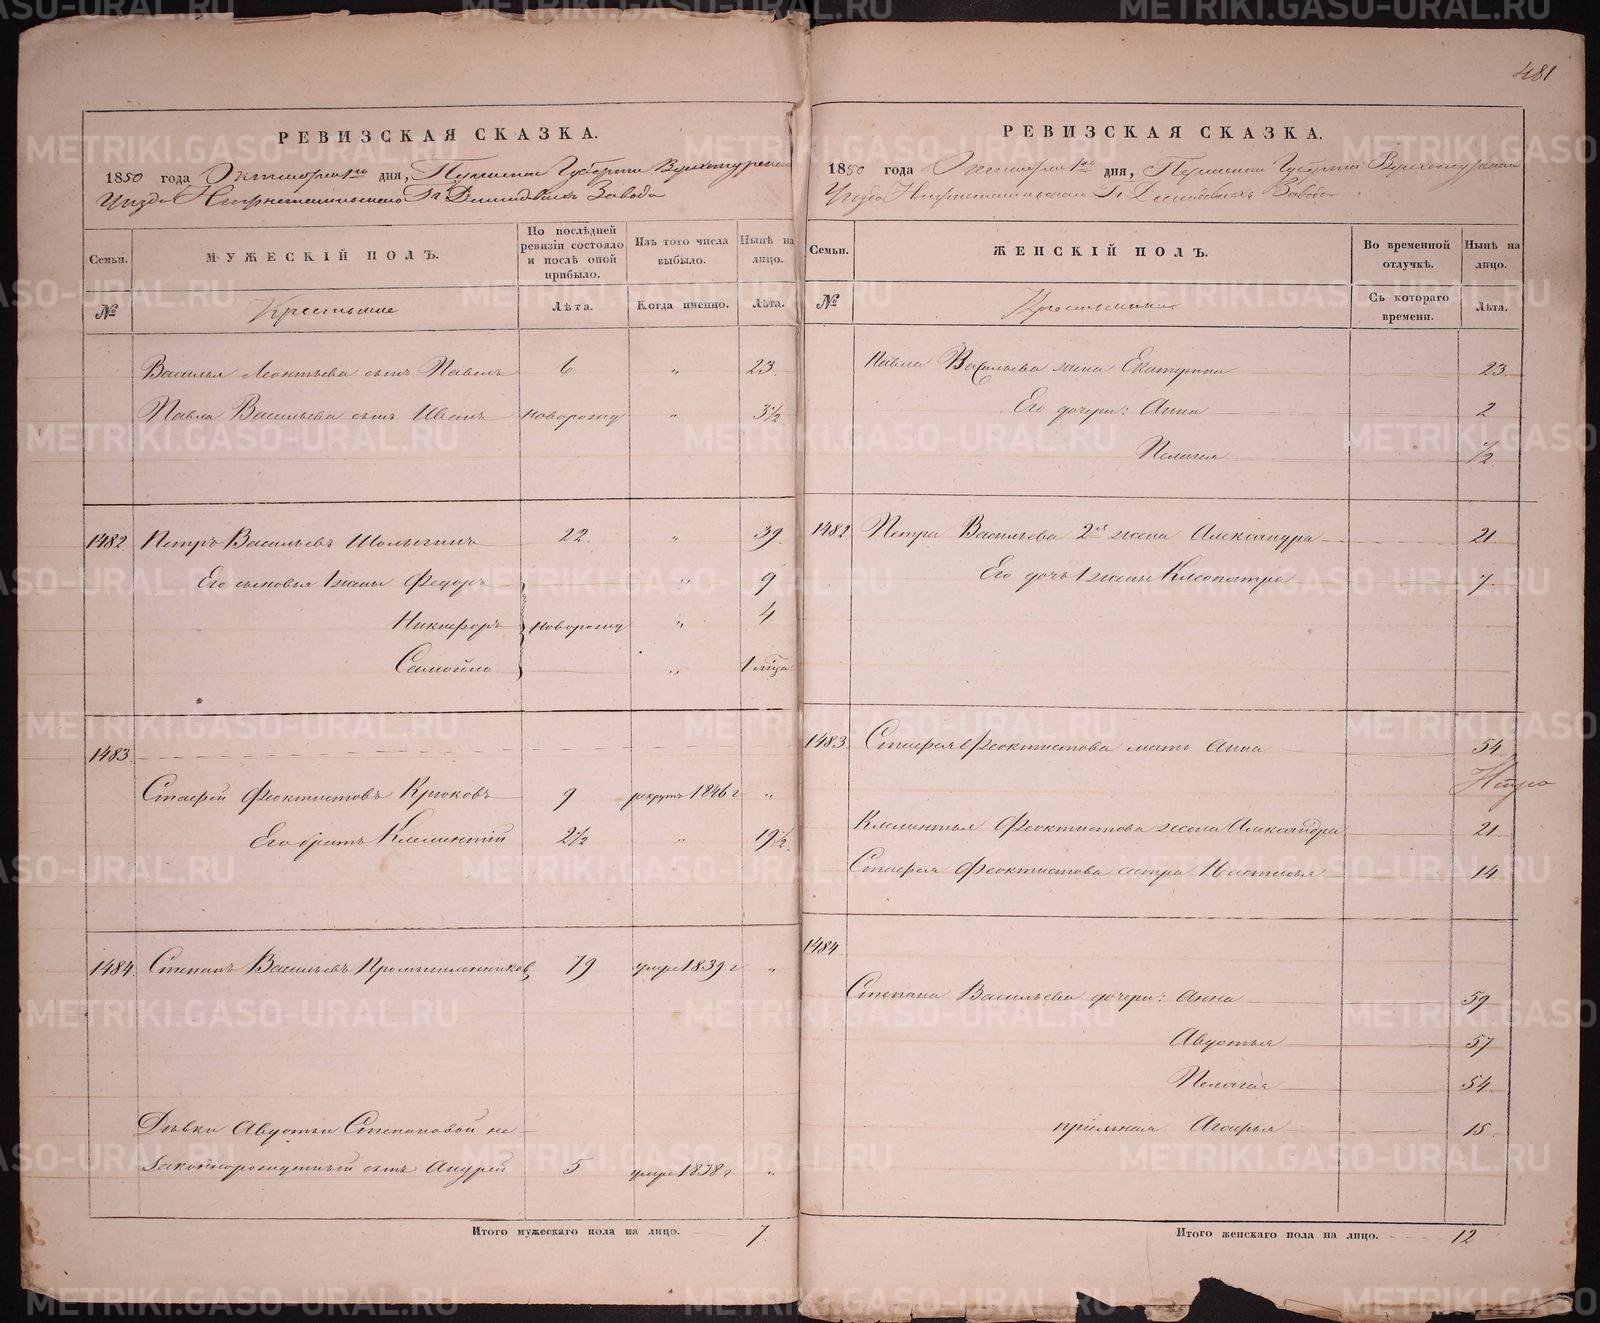 481
РЕВИЗСКАЯ СКАЗКА.
1850 года Октября 1го дня, Пермской Губернии Верхотурскаго
Уезда Нижнетагильскаго Гг Демидовыхъ Завода
Семьи. МУЖЕСКІЙ ПОЛЪ. По послѣдней ревизіи состояло и послѣ оной прибыло. Изъ того числа выбыло. Нынѣ на лицо.
№ Крестьяне Лѣта. Когда именно. Лѣта.
Василья Леонтьева сынъ Павелъ 6 " 23
Павла Васильева сынъ Иванъ новорожд " 3½
1482 Петръ Васильевъ Шолыгинъ 22 " 39
Его сыновья 1 жены Федоръ " 9
Никифоръ новорожд " 4
Самойло " 1 мца
1483
Стафей Феоктистовъ Крюковъ 9 рекрутъ 1846 г "
Его братъ Клементій 2½ " 19½
1484 Степанъ Васильевъ Промышленниковъ 79 умре 1839 г "
Дѣвки Авдотьи Степановой не-
законнорожденный сынъ Андрей 5 умре 1838 г "
Итого мужескаго пола на лицо. 7
РЕВИЗСКАЯ СКАЗКА.
1850 года Октября 1го дня, Пермской Губерніи Верхотурскаго
Уезда Нижнетагильскаго Гг Демидовыхъ Завода
Семьи. ЖЕНСКІЙ ПОЛЪ. Во временной отлучкѣ. Нынѣ на лицо.
№ Крестьянки Съ котораго времени. Лѣта.
Павла Васильева жена Екатерина 23
Его дочери: Анна 2
Пелагея ½
1482 Петра Васильева 2я жена Александра 21
Его дочь 1 жены Клеопатра 7
1483 Стафея Феоктистова мать Анна 54
Клементья Феоктистова жена Александра 21
Стафея Феоктистова сестра Настасья 14
1484
Степана Васильева дочери: Анна 59
Авдотья 57
Пелагея 54
пріемная Агафья 15
Итого женскаго пола на лицо. 12
METRIKI.GASO-URAL.RU